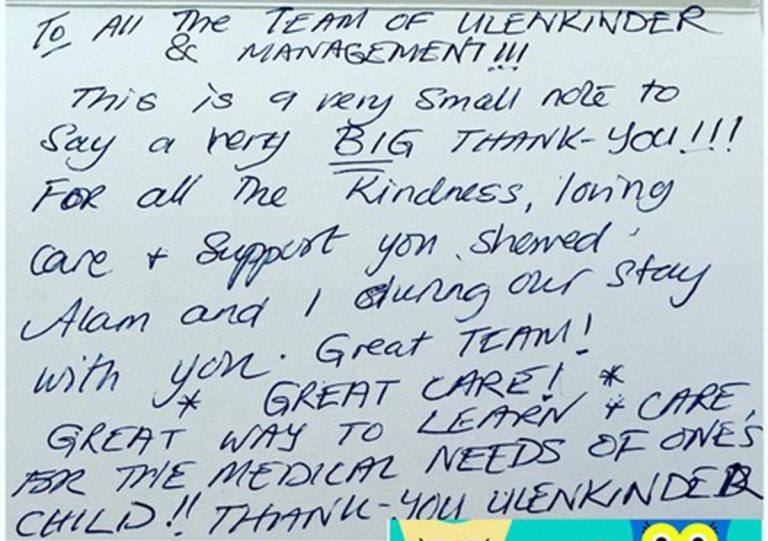 To All The TEAM OF ULENKINDER
& MANAGEMENT!!!
This is a very small note to
Say a very BIG THANK-YOU!!!
FOR all The Kindness, loving
care + Support you showed
Alam and I during our stay
with you. Great TEAM!
* GREAT CARE! *
GREAT WAY TO LEARN + CARE,
FOR THE MEDICAL NEEDS OF ONE'S
CHILD!! THANK-YOU ULENKINDER